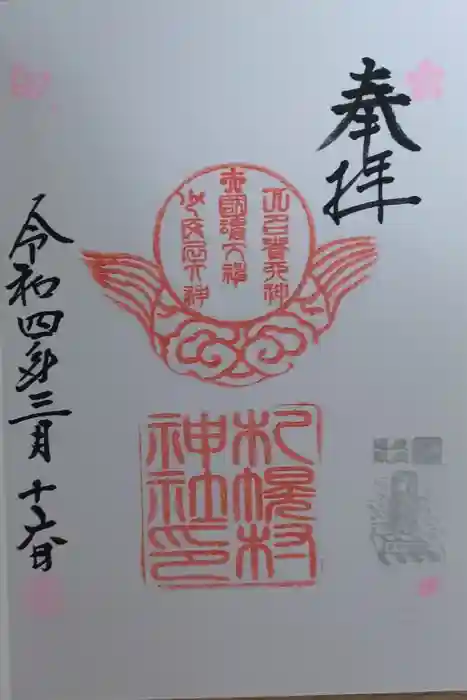 奉拝
大己貴大神
大國魂大神
少彦名大神
札幌村
神社印
令和四年三月十六日